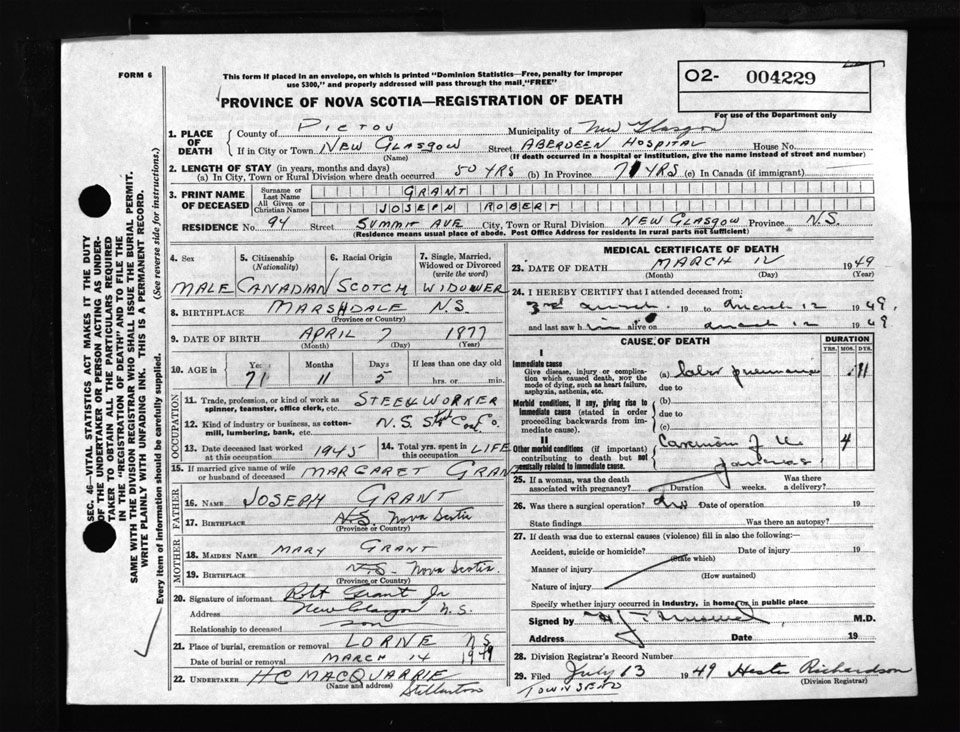 FORM 6
This form if placed in an envelope, on which is printed "Dominion Statistics—Free, penalty for improper
use $300," and properly addressed will pass through the mail, "FREE"
PROVINCE OF NOVA SCOTIA—REGISTRATION OF DEATH
O2- 004229
For use of the Department only
SEC. 46—VITAL STATISTICS ACT MAKES IT THE DUTY
OF THE UNDERTAKER OR PERSON ACTING AS UNDER-
TAKER TO OBTAIN ALL THE PARTICULARS REQUIRED
IN THE "REGISTRATION OF DEATH" AND TO FILE THE
SAME WITH THE DIVISION REGISTRAR WHO SHALL ISSUE THE BURIAL PERMIT.
WRITE PLAINLY WITH UNFADING INK. THIS IS A PERMANENT RECORD.
Every item of information should be carefully supplied. (See reverse side for instructions.)
1. PLACE OF DEATH
County of PICTOU Municipality of New Glasgow
If in City or Town NEW GLASGOW Street ABERDEEN HOSPITAL House No.
(Name) (If death occurred in a hospital or institution, give the name instead of street and number)
2. LENGTH OF STAY (in years, months and days)
(a) In City, Town or Rural Division where death occurred 50 YRS (b) In Province 71 YRS (c) In Canada (if immigrant)
3. PRINT NAME OF DECEASED
Surname or Last Name GRANT
All Given or Christian Names JOSEPH ROBERT
RESIDENCE No. 94 Street SUMMIT AVE City, Town or Rural Division NEW GLASGOW Province N.S.
(Residence means usual place of abode. Post Office Address for residents in rural parts not sufficient)
4. Sex MALE
5. Citizenship (Nationality) CANADIAN
6. Racial Origin SCOTCH
7. Single, Married, Widowed or Divorced (write the word) WIDOWER
8. BIRTHPLACE MARSHDALE N.S.
(Province or Country)
9. DATE OF BIRTH APRIL 7 1877
(Month) (Day) (Year)
10. AGE in Years 71 Months 11 Days 5 If less than one day old hrs. or min.
OCCUPATION
11. Trade, profession, or kind of work as spinner, teamster, office clerk, etc. STEELWORKER
12. Kind of industry or business, as cotton-mill, lumbering, bank, etc. N.S. Steel Coal Co.
13. Date deceased last worked at this occupation 1945
14. Total yrs. spent in this occupation LIFE
15. If married give name of wife or husband of deceased MARGARET GRANT
FATHER
16. NAME JOSEPH GRANT
17. BIRTHPLACE N.S. Nova Scotia
(Province or Country)
MOTHER
18. MAIDEN NAME MARY GRANT
19. BIRTHPLACE N.S. Nova Scotia
(Province or Country)
20. Signature of informant Robt Grant Jr
Address New Glasgow N.S.
Relationship to deceased son
21. Place of burial, cremation or removal LORNE N.S.
Date of burial or removal MARCH 14 1949
22. UNDERTAKER H C MACQUARRIE
(Name and address) Stellarton
MEDICAL CERTIFICATE OF DEATH
23. DATE OF DEATH MARCH 12 1949
(Month) (Day) (Year)
24. I HEREBY CERTIFY that I attended deceased from:
3rd March 19 to March 12 1949.
and last saw him alive on March 12 1949
CAUSE OF DEATH DURATION
YRS. MOS. DYS.
I
Immediate cause
Give disease, injury or complication which caused death, not the mode of dying, such as heart failure, asphyxia, asthenia, etc.
(a) lobar pneumonia 11
due to
Morbid conditions, if any, giving rise to immediate cause (stated in order proceeding backwards from immediate cause).
(b)
due to
(c)
II
Other morbid conditions (if important) contributing to death but not causally related to immediate cause.
Carcinoma of the 4
25. If a woman, was the death associated with pregnancy? Duration weeks. Was there a delivery?
26. Was there a surgical operation? Date of operation 19
State findings Was there an autopsy?
27. If death was due to external causes (violence) fill in also the following:—
Accident, suicide or homicide? Date of injury 19
(State which)
Manner of injury
(How sustained)
Nature of injury
Specify whether injury occurred in industry, in home or in public place
Signed by M.D.
Address Date 19
28. Division Registrar's Record Number
29. Filed July 13 1949 Hester Richardson
(Division Registrar)